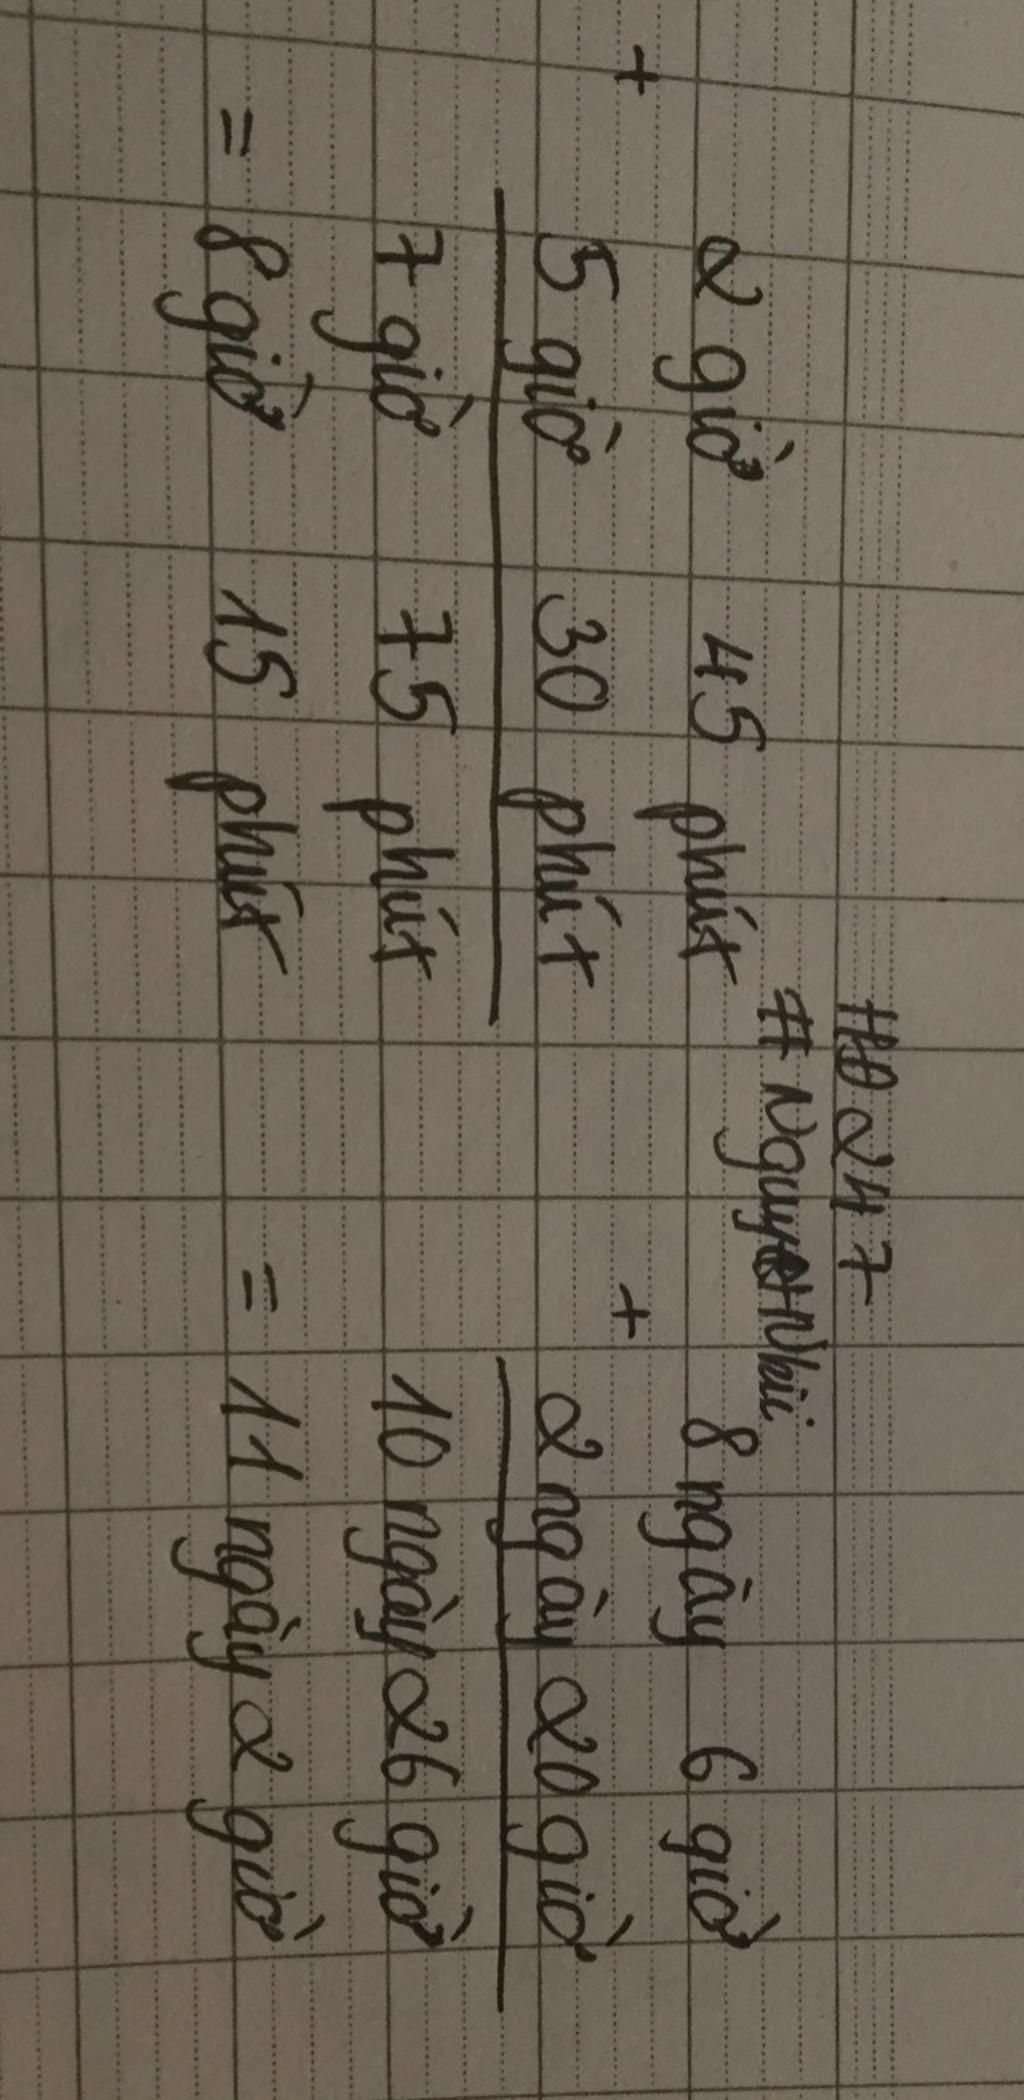 #HD 247
# Nguyệt Nhii
2 giờ 45 phút
+
5 giờ 30 phút
7 giờ 75 phút
= 8 giờ 15 phút
8 ngày 6 giờ
+
2 ngày 20 giờ
10 ngày 26 giờ
= 11 ngày 2 giờ